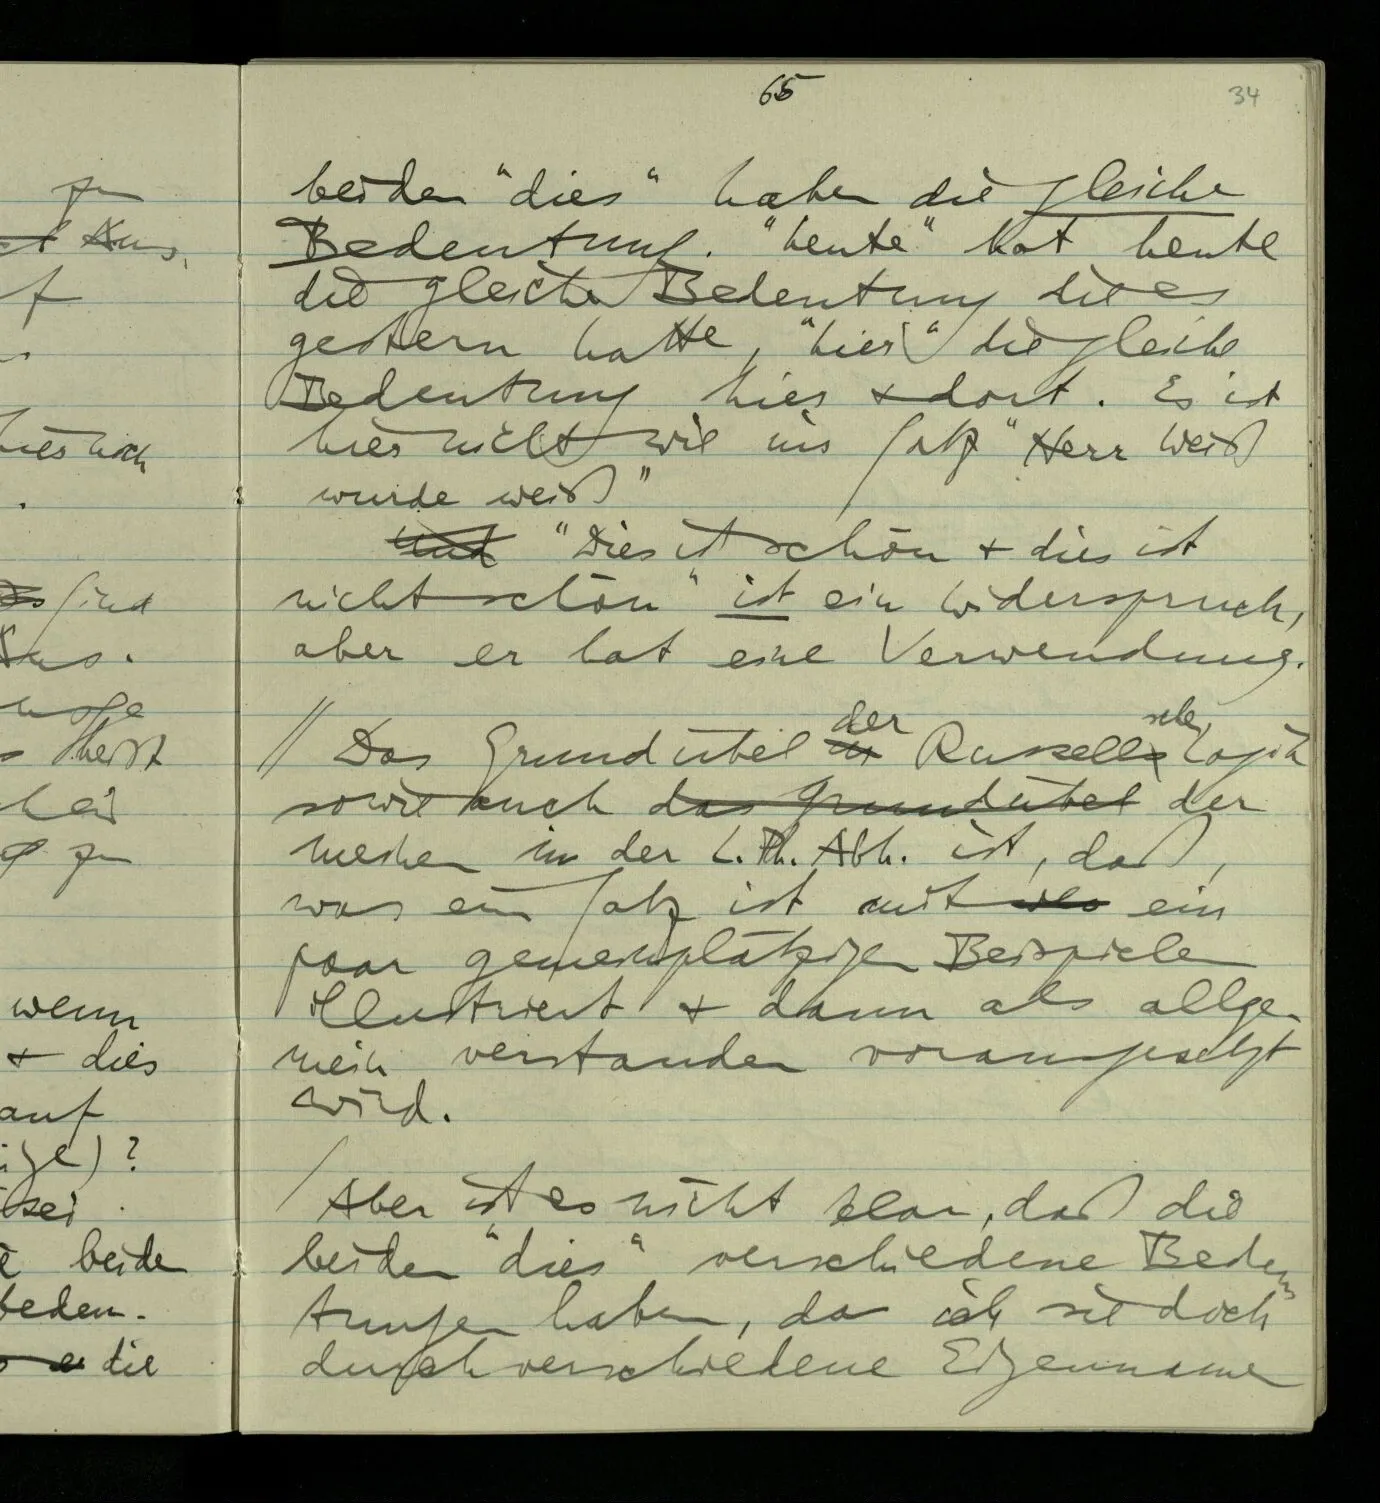 65
34
beiden "dies" haben die gleiche
Bedeutung. "heute" hat heute
die gleiche Bedeutung die es
gestern hatte, "hier" die gleiche
Bedeutung hier & dort. Es ist
hier nicht wie im Satz "Herr Weiß
wurde weiß"
Und "Dies ist schön & dies ist
nicht schön" ist ein Widerspruch,
aber er hat eine Verwendung.
// Das Grundübel der Russellschen Logik
sowie auch das Grundübel der
meinen in der L.Ph. Abh. ist, daß,
was ein Satz ist mit ein
paar gemeinplätzigen Beispielen
illustriert & dann als allge-
mein verstanden vorausgesetzt
wird.
/ Aber ist es nicht klar, daß die
beiden "dies" verschiedene Bedeu-
tungen haben, da ich sie doch
durch verschiedene Eigennamen
zu
f
hier noch
sind
heißt
zu
wenn
& dies
auf
)?
sei
beide
beden-
die